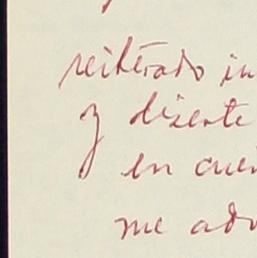 reiterado in
y diserte
en cuen
me adv